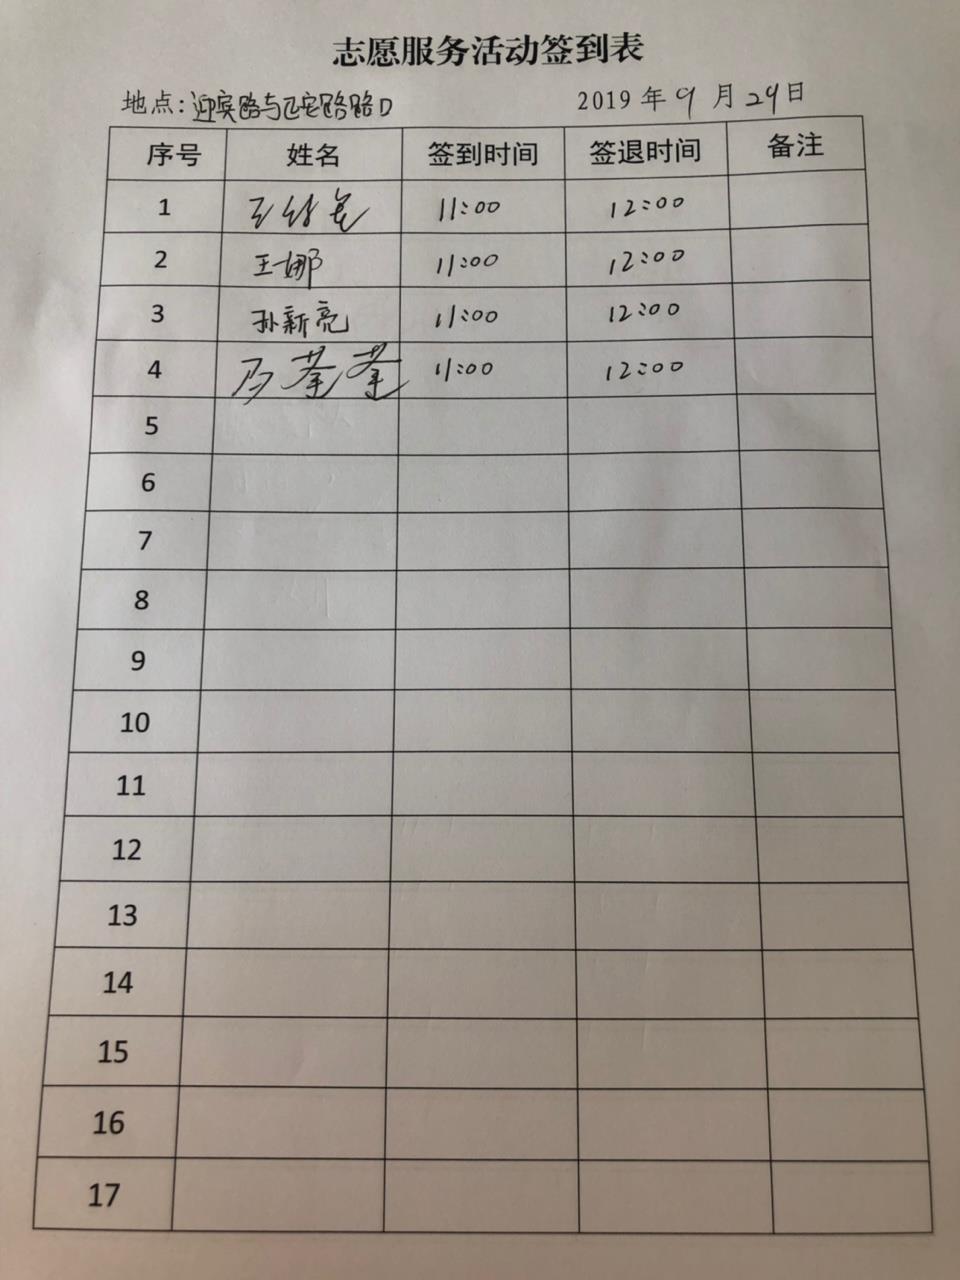 志愿服务活动签到表
地点:迎宾路与延安路路口 2019年9月29日
序号 姓名 签到时间 签退时间 备注
1 王 11:00 12:00
2 王娜 11:00 12:00
3 孙新亮 11:00 12:00
4 11:00 12:00
5
6
7
8
9
10
11
12
13
14
15
16
17